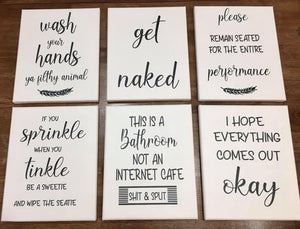 wash
your
hands
ya filthy animal
get
naked
please
REMAIN SEATED
FOR THE ENTIRE
performance
IF YOU
sprinkle
WHEN YOU
tinkle
BE A SWEETIE
AND WIPE THE SEATIE
THIS IS A
Bathroom
NOT AN
INTERNET CAFE
SHIT & SPLIT
I HOPE
EVERYTHING
COMES OUT
okay